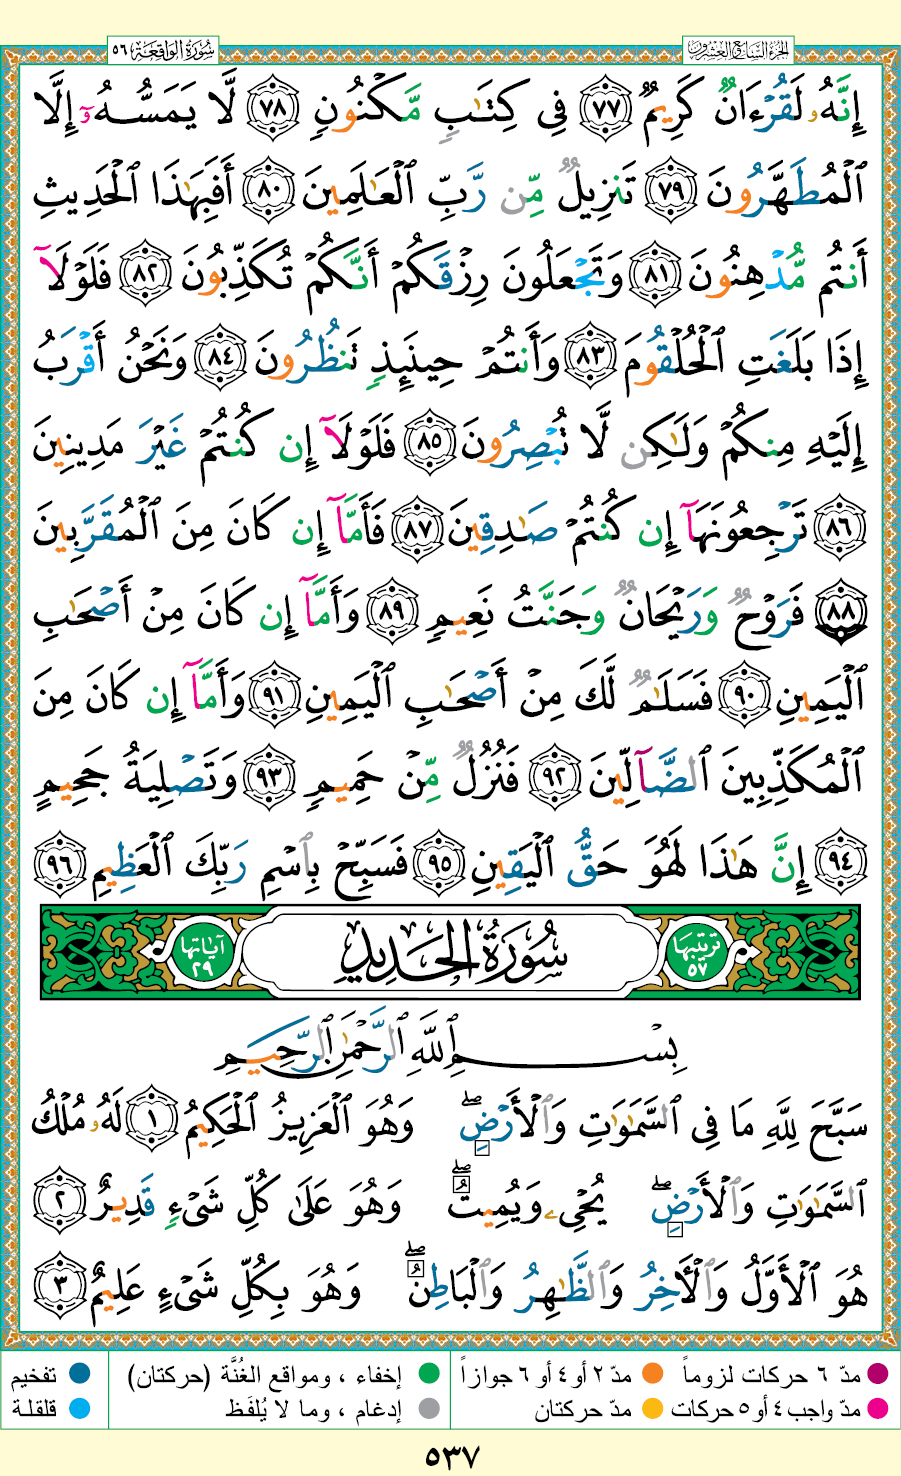 الجزء السابع والعشرون
سُورَةُ الوَاقِعَة ٥٦
إِنَّهُۥ لَقُرْءَانٌ كَرِيمٌ ٧٧ فِى كِتَٰبٍ مَّكْنُونٍ ٧٨ لَّا يَمَسُّهُۥٓ إِلَّا
ٱلْمُطَهَّرُونَ ٧٩ تَنزِيلٌ مِّن رَّبِّ ٱلْعَٰلَمِينَ ٨٠ أَفَبِهَٰذَا ٱلْحَدِيثِ
أَنتُم مُّدْهِنُونَ ٨١ وَتَجْعَلُونَ رِزْقَكُمْ أَنَّكُمْ تُكَذِّبُونَ ٨٢ فَلَوْلَآ
إِذَا بَلَغَتِ ٱلْحُلْقُومَ ٨٣ وَأَنتُمْ حِينَئِذٍ تَنظُرُونَ ٨٤ وَنَحْنُ أَقْرَبُ
إِلَيْهِ مِنكُمْ وَلَٰكِن لَّا تُبْصِرُونَ ٨٥ فَلَوْلَآ إِن كُنتُمْ غَيْرَ مَدِينِينَ
٨٦ تَرْجِعُونَهَآ إِن كُنتُمْ صَٰدِقِينَ ٨٧ فَأَمَّآ إِن كَانَ مِنَ ٱلْمُقَرَّبِينَ
٨٨ فَرَوْحٌ وَرَيْحَانٌ وَجَنَّتُ نَعِيمٍ ٨٩ وَأَمَّآ إِن كَانَ مِنْ أَصْحَٰبِ
ٱلْيَمِينِ ٩٠ فَسَلَٰمٌ لَّكَ مِنْ أَصْحَٰبِ ٱلْيَمِينِ ٩١ وَأَمَّآ إِن كَانَ مِنَ
ٱلْمُكَذِّبِينَ ٱلضَّآلِّينَ ٩٢ فَنُزُلٌ مِّنْ حَمِيمٍ ٩٣ وَتَصْلِيَةُ جَحِيمٍ
٩٤ إِنَّ هَٰذَا لَهُوَ حَقُّ ٱلْيَقِينِ ٩٥ فَسَبِّحْ بِٱسْمِ رَبِّكَ ٱلْعَظِيمِ ٩٦
ترتيبها ٥٧
سُورَةُ الحَدِيدِ
آياتها ٢٩
بِسْمِ ٱللَّهِ ٱلرَّحْمَٰنِ ٱلرَّحِيمِ
سَبَّحَ لِلَّهِ مَا فِى ٱلسَّمَٰوَٰتِ وَٱلْأَرْضِ ۖ وَهُوَ ٱلْعَزِيزُ ٱلْحَكِيمُ ١ لَهُۥ مُلْكُ
ٱلسَّمَٰوَٰتِ وَٱلْأَرْضِ ۖ يُحْىِۦ وَيُمِيتُ ۖ وَهُوَ عَلَىٰ كُلِّ شَىْءٍ قَدِيرٌ ٢
هُوَ ٱلْأَوَّلُ وَٱلْءَاخِرُ وَٱلظَّٰهِرُ وَٱلْبَاطِنُ ۖ وَهُوَ بِكُلِّ شَىْءٍ عَلِيمٌ ٣
مدّ ٦ حركات لزوماً مدّ ٢ أو ٤ أو ٦ جوازاً إخفاء ، ومواقع الغُنَّة (حركتان) تفخيم
مدّ واجب ٤ أو ٥ حركات مدّ حركتان إدغام ، وما لا يُلفَظ قلقلة
٥٣٧